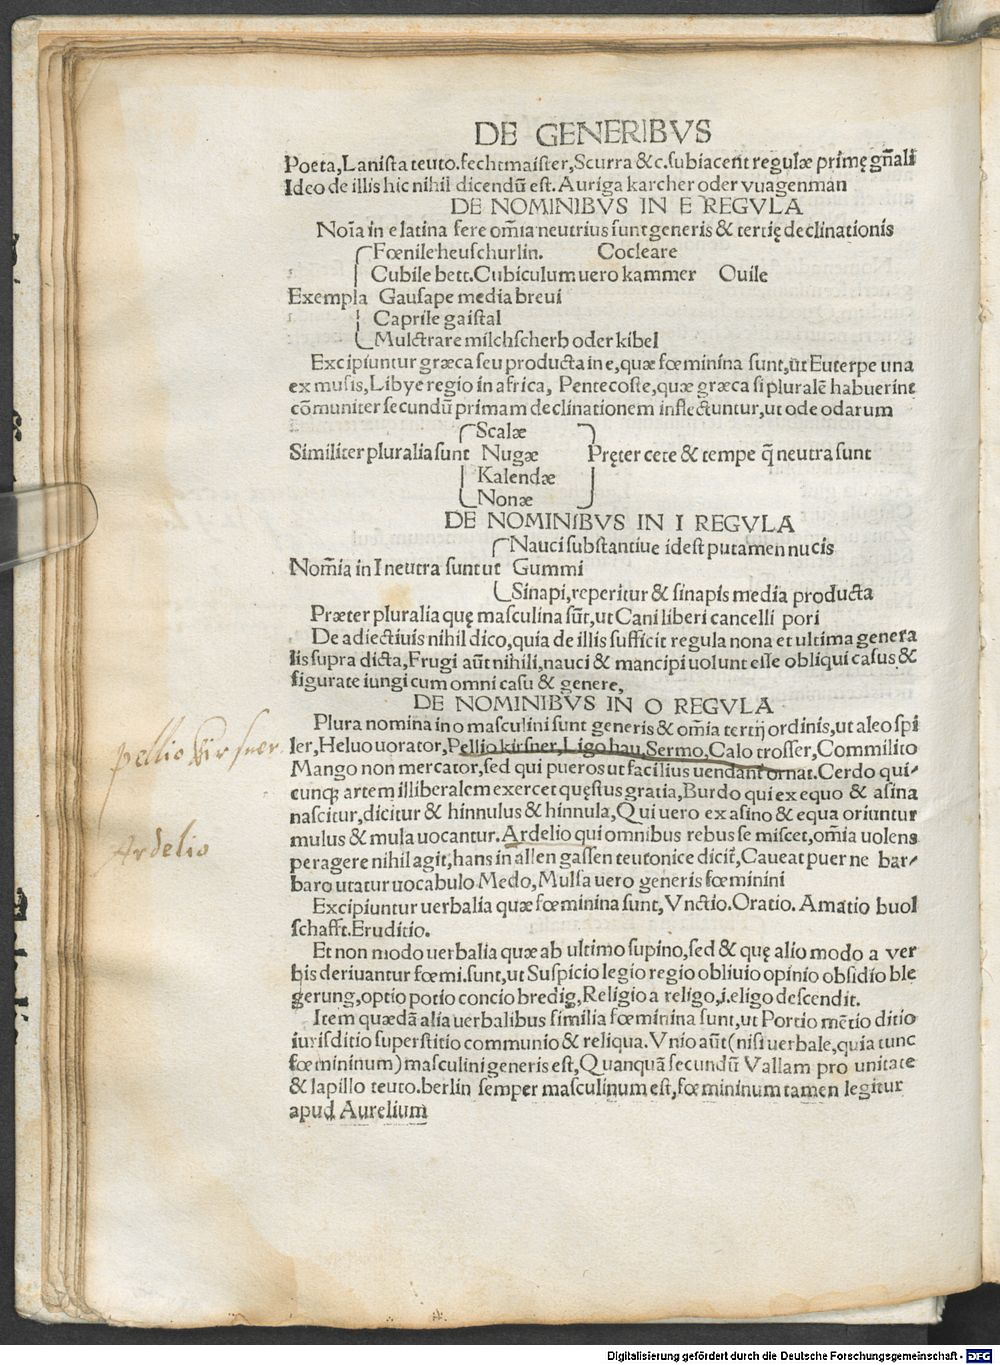 DE GENERIBVS
Poeta,Lanista teuto.fechtmaister,Scurra &c.subiacent regulæ primę gn̄ali
Ideo de illis hic nihil dicendū est. Auriga karcher oder vuagenman
DE NOMINIBVS IN E REGVLA
Noīa in e latina fere om̄ia neutrius sunt generis & tertię declinationis
Fœnile heuschurlin. Cocleare
Cubile bett.Cubiculum uero kammer Ouile
Exempla Gausape media breui
Caprile gaistal
Mulctrare milchscherb oder kibel
Excipiuntur græca seu producta in e,quæ fœminina sunt,ūt Euterpe una
ex musis,Libye regio in africa, Pentecoste,quæ græca si pluralē habuerint
cōmuniter secundū primam declinationem inflectuntur,ut ode odarum
Scalæ
Similiter pluralia sunt Nugæ Pręter cete & tempe q̄ neutra sunt
Kalendæ
Nonæ
DE NOMINIBVS IN I REGVLA
Nauci substantiue idest putamen nucis
Nom̄ia in I neutra sunt ut Gummi
Sinapi,reperitur & sinapis media producta
Præter pluralia quę masculina sūt,ut Cani liberi cancelli pori
De adiectiuis nihil dico,quia de illis sufficit regula nona et ultima genera
lis supra dicta,Frugi aūt nihili,nauci & mancipi uolunt esse obliqui casus &
figurate iungi cum omni casu & genere,
DE NOMINIBVS IN O REGVLA
Plura nomina in o masculini sunt generis & om̄ia tertij ordinis,ut aleo spi
ler,Heluo uorator,Pellio kirsner,Ligo hau,Sermo,Calo trosser,Commilito
Mango non mercator,sed qui pueros ut facilius uendant ornat.Cerdo qui-
cunqꝫ artem illiberalem exercet quęstus gratia,Burdo qui ex equo & asina
nascitur,dicitur & hinnulus & hinnula,Qui uero ex asino & equa oriuntur
mulus & mula uocantur.Ardelio qui omnibus rebus se miscet,om̄ia uolens
peragere nihil agit,hans in allen gassen teutonice dicit̄,Caueat puer ne bar-
baro utatur uocabulo Medo,Mulsa uero generis fœminini
Excipiuntur uerbalia quæ fœminina sunt,Vnctio.Oratio. Amatio buol
schafft.Eruditio.
Et non modo uerbalia quæ ab ultimo supino,sed & quę alio modo a ver
bis deriuantur fœmi.sunt,ut Suspicio legio regio obliuio opinio obsidio ble
gerung,optio potio concio bredig,Religio a religo,i.eligo descendit.
Item quædā alia uerbalibus similia fœminina sunt,ut Portio mētio ditio
iurisditio superstitio communio & reliqua.Vnio aūt(nisi uerbale,quia tunc
fœmininum)masculini generis est,Quanquā secundū Vallam pro unitate
& lapillo teuto.berlin semper masculinum est,fœmininum tamen legitur
apud Aurelium
pellio kirsner
Ardelio
Digitalisierung gefördert durch die Deutsche Forschungsgemeinschaft - DFG